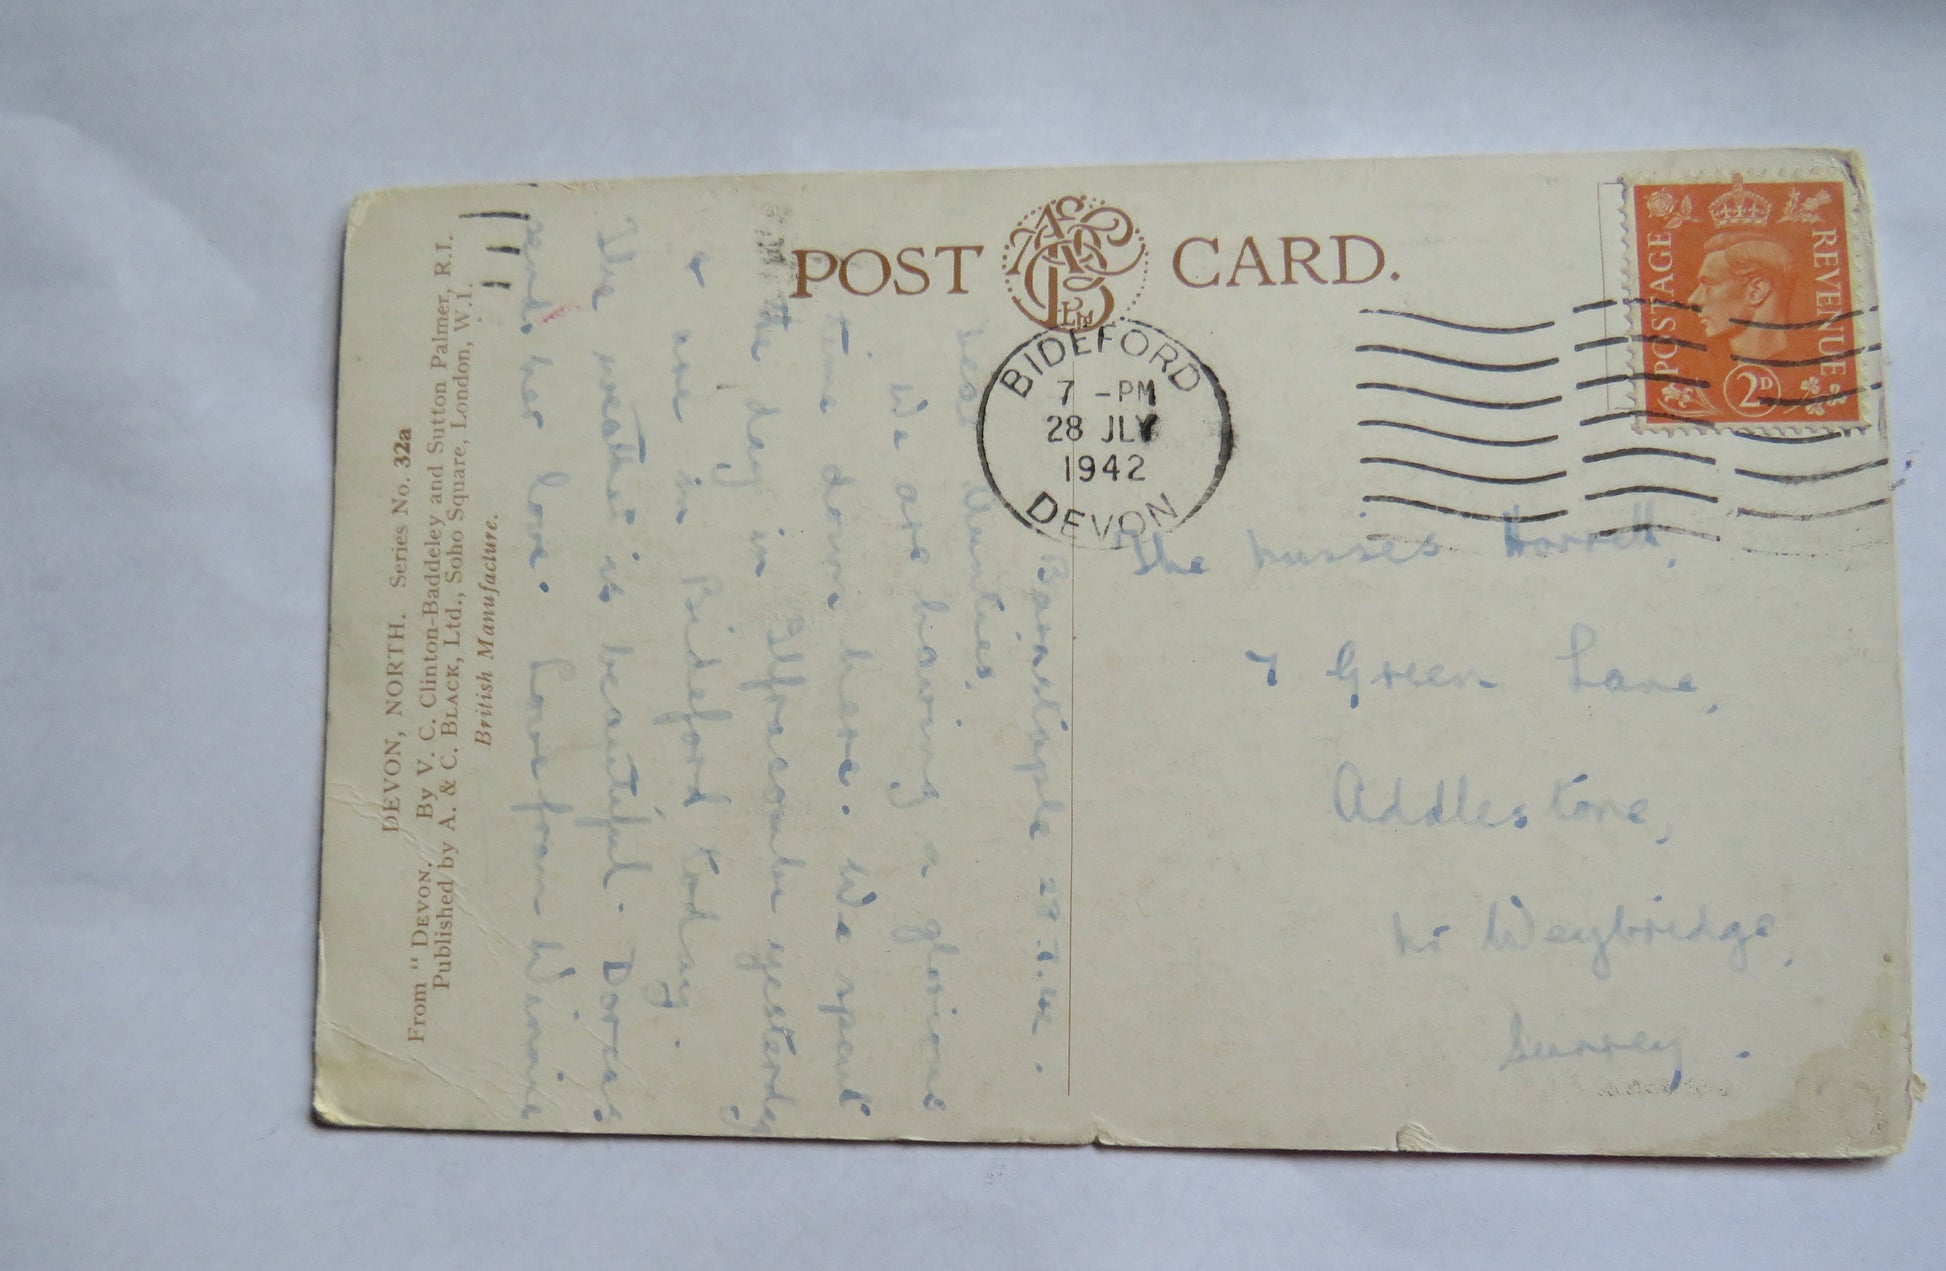 POST CARD.
BIDEFORD
7 - PM
28 JLY
1942
DEVON
POSTAGE REVENUE
2D
DEVON, NORTH. Series No. 32a
From "DEVON." By V. C. Clinton-Baddeley and Sutton Palmer, R.I.
Published by A. & C. BLACK, Ltd., Soho Square, London, W.1.
British Manufacture.
Barnstaple 28.7.42.
Dear Aunties,
We are having a glorious
time down here. We spent
the day in Ilfracombe yesterday
& are in Bideford today.
The weather is beautiful. Dorcas
sends her love. Love from Winnie
The Misses
7 Green Lane,
Addlestone,
Nr Weybridge,
Surrey.